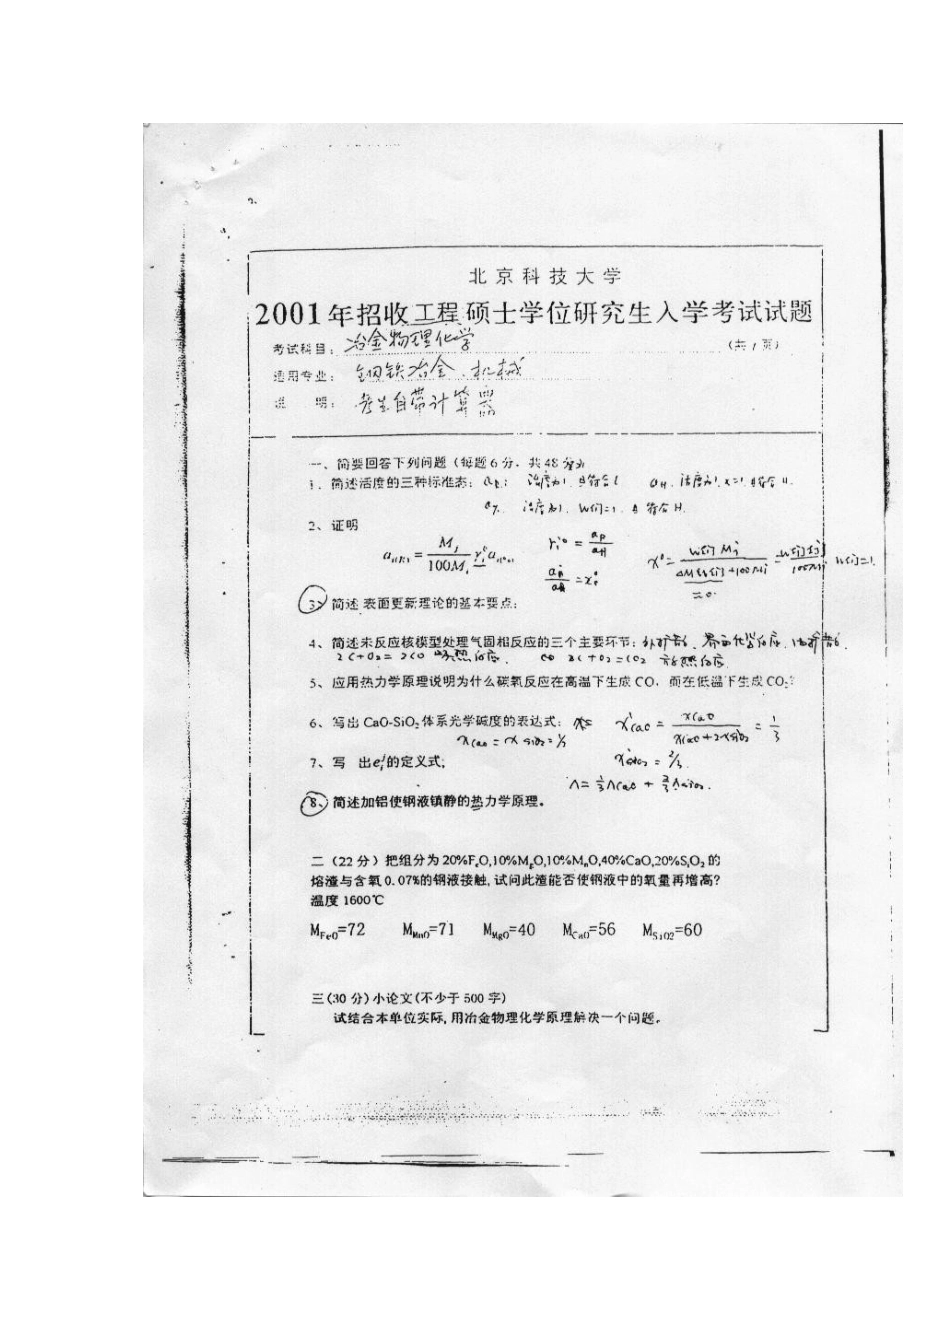 北京科技大学
2001年招收工程硕士学位研究生入学考试试题
考试科目：冶金物理化学 (共1页)
适用专业：钢铁冶金、机械
说 明：考生自带计算器
一、简要回答下列问题（每题6分，共48分）
1、简述活度的三种标准态：aR: 活度为1,且符合L aH. 活度为1, x=1,且符合H.
a%. 活度为1. W[i]=1. 且符合H.
2、证明
γi° = aR/aH
3、简述表面更新理论的基本要点；
4、简述未反应核模型处理气固相反应的三个主要环节；外扩散、界面化学反应、内扩散
5、应用热力学原理说明为什么碳氧反应在高温下生成CO，而在低温下生成CO₂?
6、写出CaO-SiO₂体系光学碱度的表达式； x'CaO = xCaO/(xCaO+2xSiO₂) = 1/3
xCaO = xSiO₂ = 1/2
7、写 出eᵢʲ的定义式；
x'SiO₂ = 2/3.
Λ = 1/3ΛCaO + 2/3ΛSiO₂.
8、简述加铝使钢液镇静的热力学原理。
二（22分）把组分为20%FeO,10%MgO,10%MnO,40%CaO,20%SiO₂的
熔渣与含氧0.07%的钢液接触,试问此渣能否使钢液中的氧量再增高?
温度1600℃
M_FeO=72 M_MnO=71 M_MgO=40 M_CaO=56 M_SiO2=60
三(30分)小论文(不少于500字)
试结合本单位实际,用冶金物理化学原理解决一个问题。